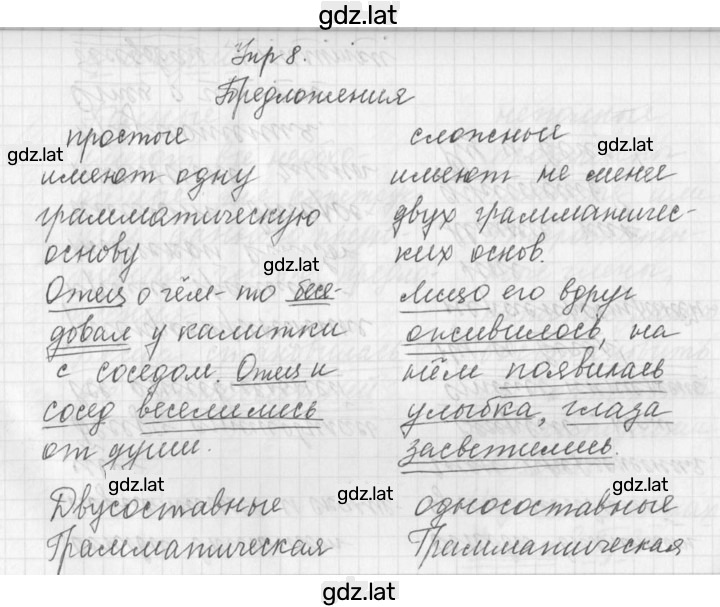 gdz.lat
Упр 8.
Предложения
простые
gdz.lat
имеют одну
грамматическую
основу
gdz.lat
Отец о чём-то бесе-
довал у калитки
с соседом. Отец и
сосед веселились
от души.
сложные
gdz.lat
имеют не менее
двух грамматичес-
ких основ.
Лицо его вдруг
оживилось, на
нём появилась
улыбка, глаза
засветились.
gdz.lat
gdz.lat
gdz.lat
Двусоставные
Грамматическая
односоставные
Грамматическая
gdz.lat